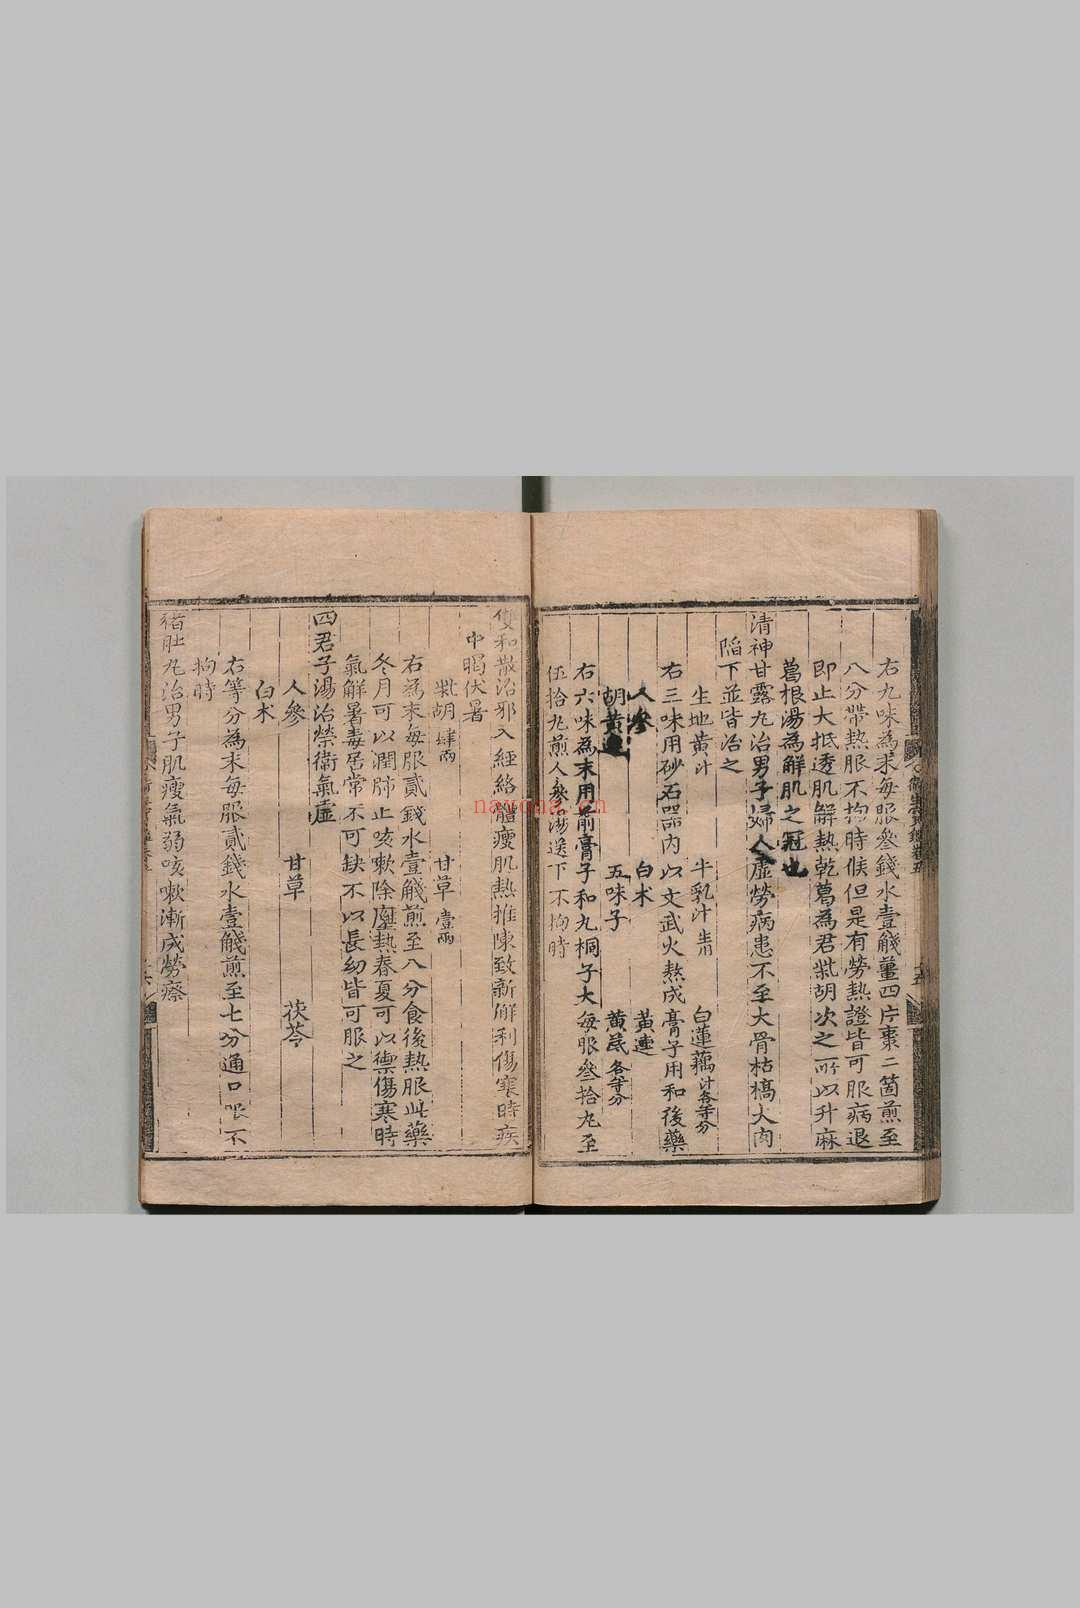 右九味為末每服叄錢水壹䤄薑四片棗二箇煎至
八分帶熱服不拘時候但是有勞熱證皆可服病退
即止大抵透肌解熱乾葛為君柴胡次之所以升麻
葛根湯為解肌之冠也
清神甘露丸治男子婦人虛勞病患不至大骨枯槁大肉
陷下並皆治之
生地黃汁 牛乳汁 白蓮藕汁各等分
右三味用砂石器內以文武火熬成膏子用和後藥
人參 白术 黃連
胡黃連 五味子 黃芪各等分
右六味為末用前膏子和丸桐子大每服叄拾丸至
伍拾丸煎人參湯送下不拘時
雙和散治邪入經絡體瘦肌熱推陳致新解利傷寒時疾
中暍伏暑
柴胡肆兩 甘草壹兩
右為末每服貳錢水壹䤄煎至八分食後熱服此藥
冬月可以潤肺止咳嗽除壅熱春夏可以禦傷寒時
氣解暑毒居常不可缺不以長幼皆可服之
四君子湯治榮衛氣虛
人參 甘草 茯苓
白术
右等分為末每服貳錢水壹䤄煎至七分通口服不
拘時
豬肚丸治男子肌瘦氣弱咳嗽漸成勞瘵
nayona.cn